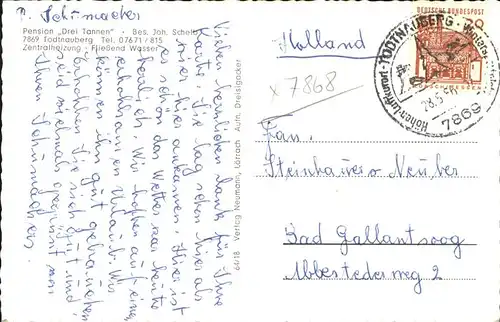 P. Schumacher
Pension „Drei Tannen" · Bes. Joh. Schelb
7869 Todtnauberg Tel. 07671 / 815
Zentralheizung · Fließend Wasser
Vielen herzlichen Dank für Ihre
Karte. Sie lag schon hier als
wir hier ankamen. Hier ist
es schön das Wetter war heute
herrlich. Wir hoffen auf einen
erholsamen Urlaub. Wir
können ihn gut gebrauchen.
Erholen Sie sich gut und
seid vielmals gegrüsst von
Ihren Schumachers.
64/18 Verlag Neumann, Lörrach Aufn. Dreisigacker
Holland
x 7868
DEUTSCHE BUNDESPOST
20
TODTNAUBERG
Höhen-Luftkurort
7869
Fam.
Steinhauers Neuber
Bad Gallantsoog
Abbestederweg 2